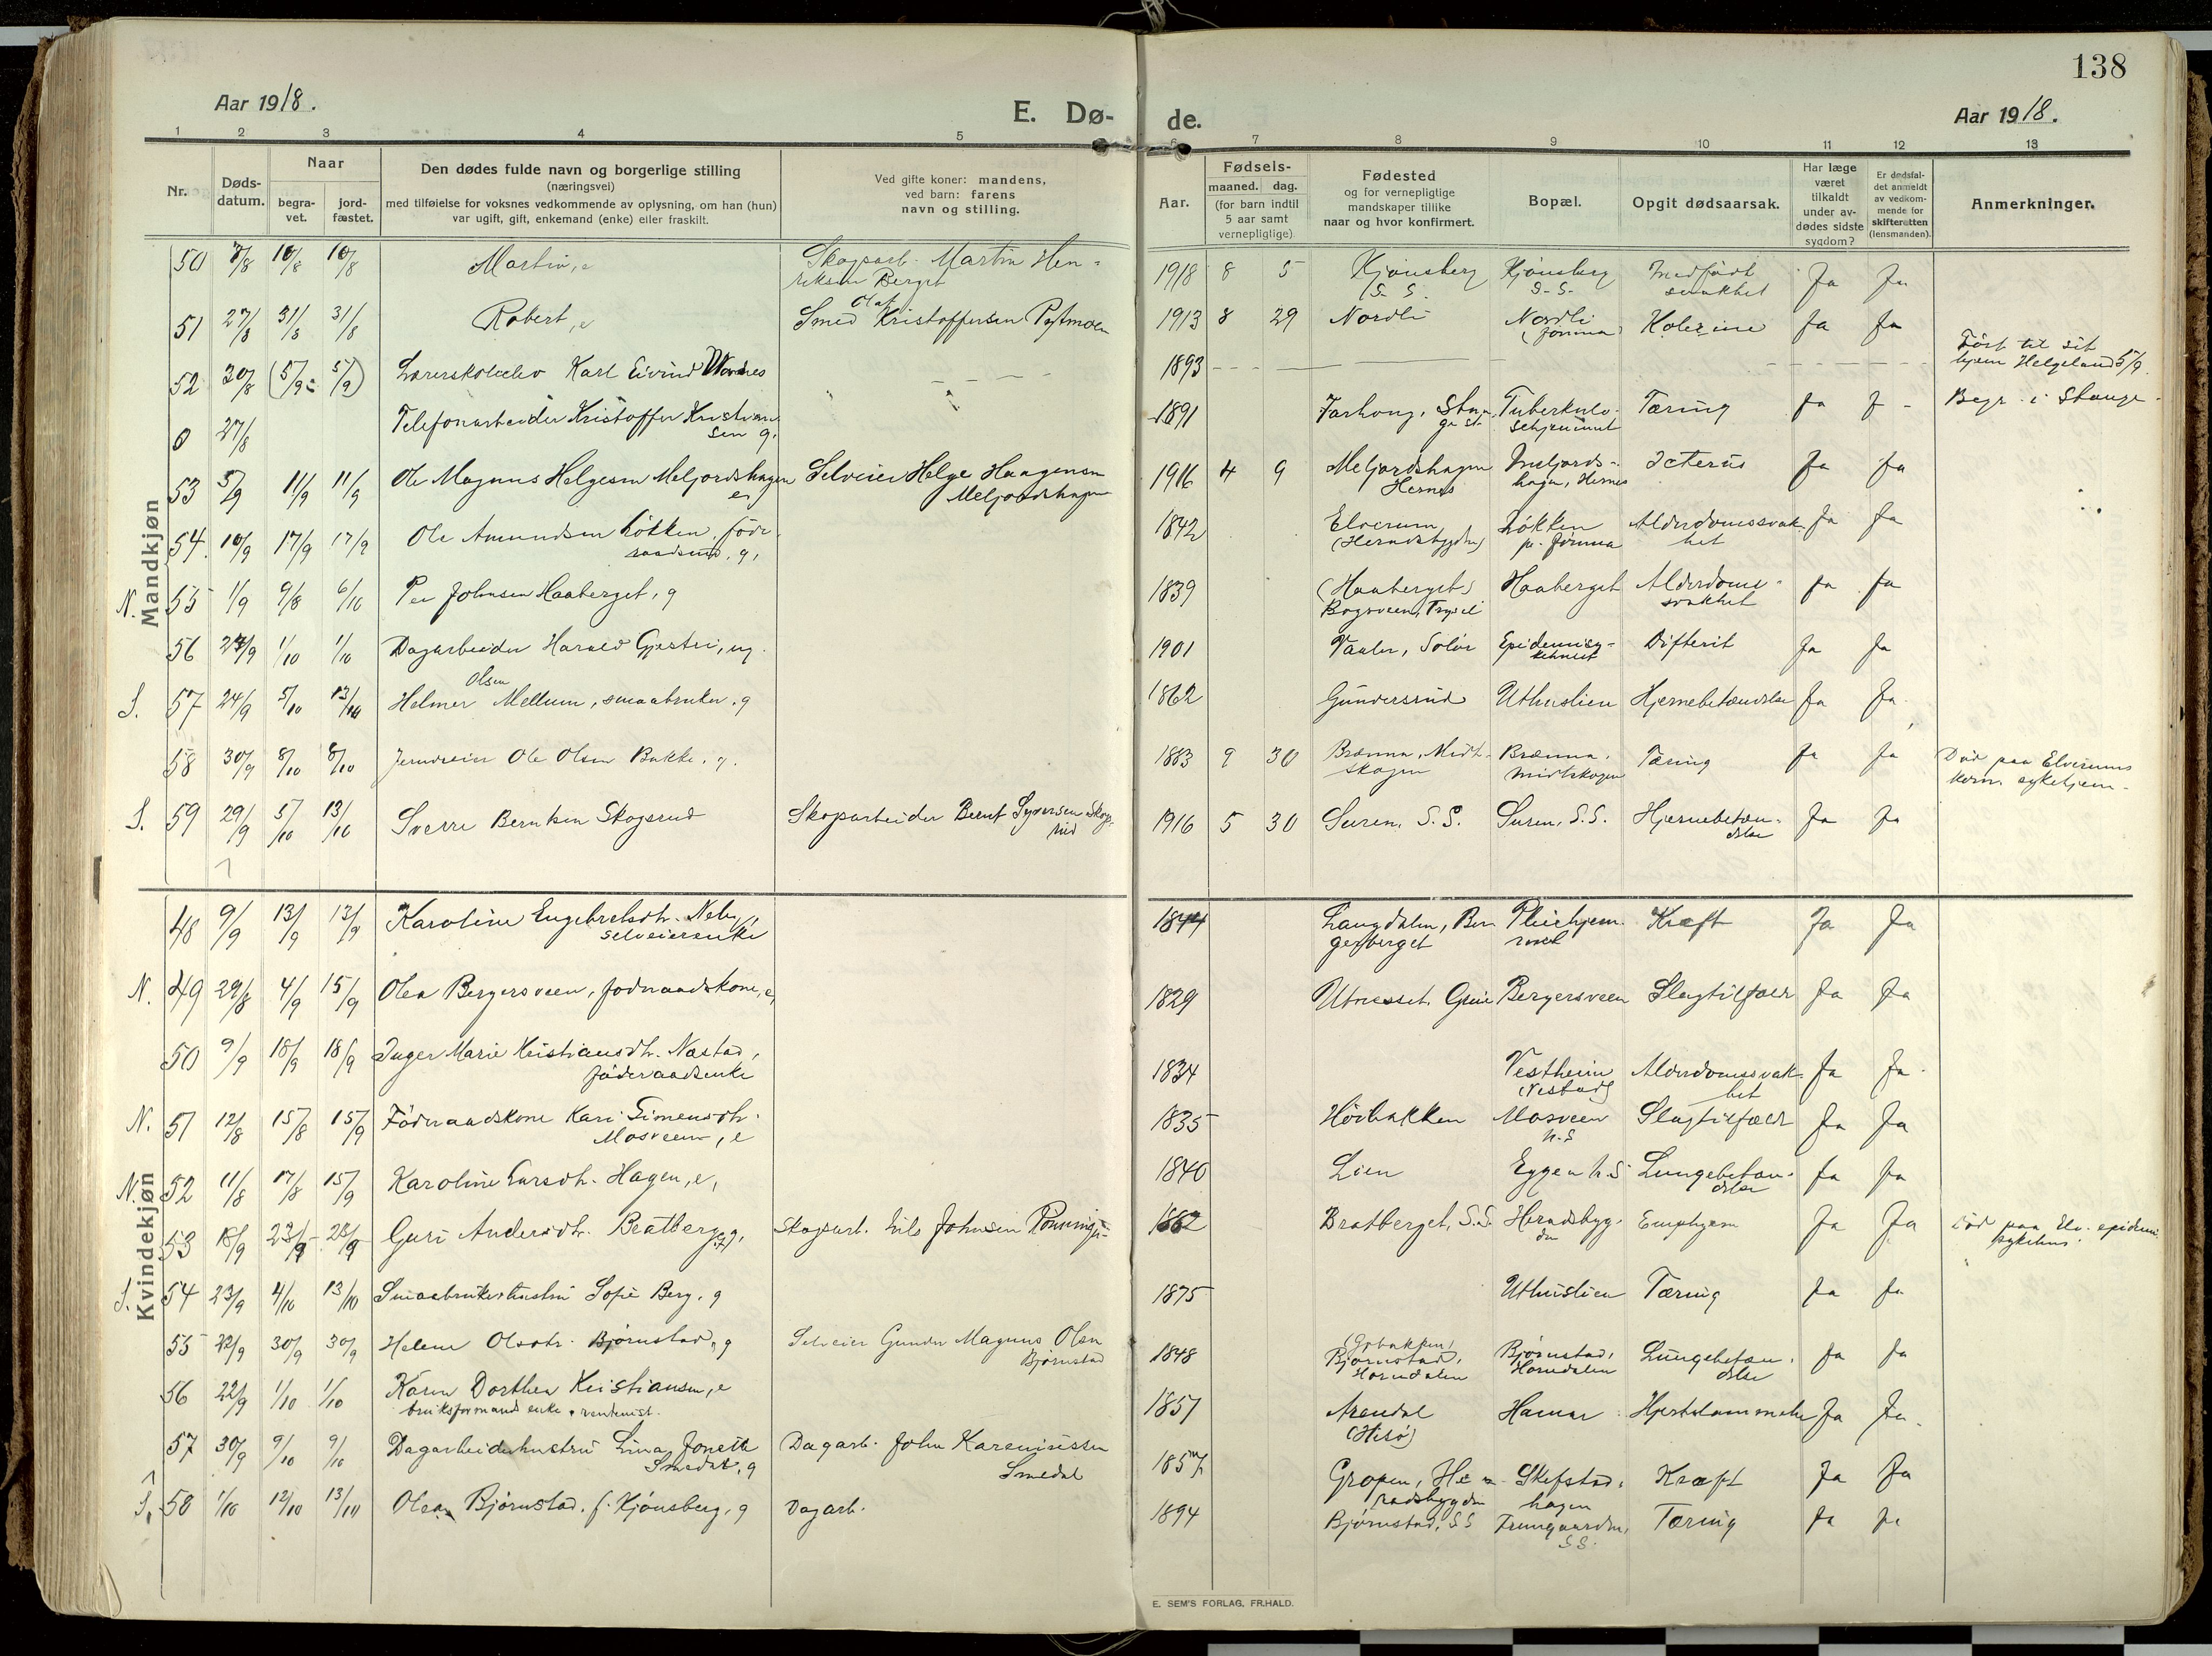 138
Aar 1918.
E. Dø-
de.
Aar 1918.
1 2 3 4 5 6 7 8 9 10 11 12 13
Nr.
Døds-
datum.
Naar
begra-
vet.
jord-
fæstet.
Den dødes fulde navn og borgerlige stilling
(næringsvei)
med tilføielse for voksnes vedkommende av oplysning, om han (hun)
var ugift, gift, enkemand (enke) eller fraskilt.
Ved gifte koner: mandens,
ved barn: farens
navn og stilling.
Aar.
Fødsels-
maaned. dag.
(for barn indtil
5 aar samt
vernepligtige)
Fødested
og for vernepligtige
mandskaper tillike
naar og hvor konfirmert.
Bopæl.
Opgit dødsaarsak.
Har læge
været
tilkaldt
under av-
dødes sidste
sygdom?
Er dødsfal-
det anmeldt
av vedkom-
mende for
skifteretten
(lensmanden).
Anmerkninger.
Mandkjøn
50 7/8 10/8 10/8 Martin, e Skogsarb. Martin Hen-
riksen Berget 1918 8 5 Kjønsberg
S. S. Kjønsberg
S. S. Medfødt
svakhet Ja Ja
51 27/8 31/8 31/8 Robert, e Smed Olaf Kristoffersen 1913 8 29 Nordli Nordli
(Jømna) Kolerine Ja Ja
52 30/8 (5/9 5/9) Lærerskoleelev Karl Eivind 1893 Ført til sit
hjem Helgeland 5/9.
0 27/8 Telefonarbeider Kristoffer Kristian
sen g. 1891 Stan-
ge st. Tuberkulo-
sehjemmet Tæring Ja J- Begr. i Stange.
53 5/9 11/9 11/9 Ole Magnus Helgesen Meljordshagen
e Selveier Helge Haagensen
Meljordshagen 1916 4 9 Meljordshagen
Hernes Meljords-
hagen, Hernes Icterus Ja Ja
54. 10/9 17/9 17/9 Ole Amundsen Løkken, føde-
raadsmd, g, 1842 Elverum
(Hernesbygden) Løkken
pr. Jømna Alderdomssvak-
het Ja Ja
N. 55 1/9 9/8 6/10 Per Johnsen Haaberget, g 1839 (Haaberget)
Bogsveen, Trysil Haaberget Alderdoms-
svakhet Ja Ja
56 24/9 1/10 1/10 Dagarbeider Harald Gjestri, ug. 1901 Vaaler, Solør Epidemisy-
kehuset Difterit Ja Ja
S. 57 24/9 5/10 13/10 Helmer Olsen Mellum, smaabruker, g 1862 Gundersrud Uthuslien Hjernebetændelse Ja Ja.
58 30/9 8/10 8/10 Jordeier Ole Olsen Bakke, g. 1883 9 30 Brænna, Midt-
skogen Brænna,
Midtskogen Tæring Ja Ja Død paa Elverums
kom. sykehjem.
S. 59 29/9 5/10 13/10 Sverre Berntsen Skogsrud Skogsarbeider Bernt Syversen Skogs-
rud 1916 5 30 Suren, S.S. Suren, S.S. Hjernebetæn-
delse Ja Ja
Kvindekjøn
48 9/9 13/9 13/9 Karoline Engebretsdtr. Neby,
selveierenke 1844 Langdalen, Ber
gerberget Pleiehjem- Kræft Ja Ja
N. 49 29/8 4/9 15/9 Olea Bergersveen, føderaadskone, e, 1829 Bergersveen Slagtilfælde Ja Ja
50 9/9 18/9 18/9 Inger Marie Kristiansdtr. Næstad,
føderaadsenke 1834 Vestheim
(Nestad) Alderdomssvak-
het Ja Ja
N. 51 12/8 15/8 15/9 Føderaadskone Kari Simensdtr.
Mosveen, e 1835 Hørbakken Mosveen
N.S Slagtilfælde Ja Ja
N. 52 11/8 17/8 15/9 Karoline Larsdtr. Hagen, e, 1840 Lien Eggen N.S Lungebetæn-
delse Ja Ja
53 18/9 23/9 23/9 Guri Andersdtr. Bratberg, g, Skogsarb. Nils Johnsen 1882 Bratberget, S.S. Hernesbyg-
den Emphyem Ja Ja Død paa Elv. epidemi-
sykehus.
S. 54 23/9 4/10 13/10 Smaabrukerhustru Sofie Berg, g 1875 Uthuslien Tæring Ja Ja
55 22/9 30/9 30/9 Helene Olsdtr. Bjørnstad, g Selveier Gunder Magnus Olsen
Bjørnstad 1848 (Gybakken)
Bjørnstad,
Horndalen Bjørnstad,
Horndalen Lungebetæn-
delse Ja Ja
56 22/9 1/10 1/10 Karen Dorthea Kristiansen, e
bruksformands enke, rentenist. 1857 Arendal
(Hisø) Hamar Hjertelammelse Ja Ja.
57 30/9 9/10 9/10 Dagarbeiderhustru Lina Jonette
Smedal, g Dagarb. John Kareniussen
Smedal 1857 Gropen, Her-
nadsbygden Skefstad-
hagen Kræft Ja Ja
S. 58 1/10 12/10 13/10 Olea Bjørnstad, f. Kjønsberg, g Dagarb. 1894 Bjørnstad, SS
SS. Tæring Ja Ja
E. SEM'S FORLAG, FR.HALD.